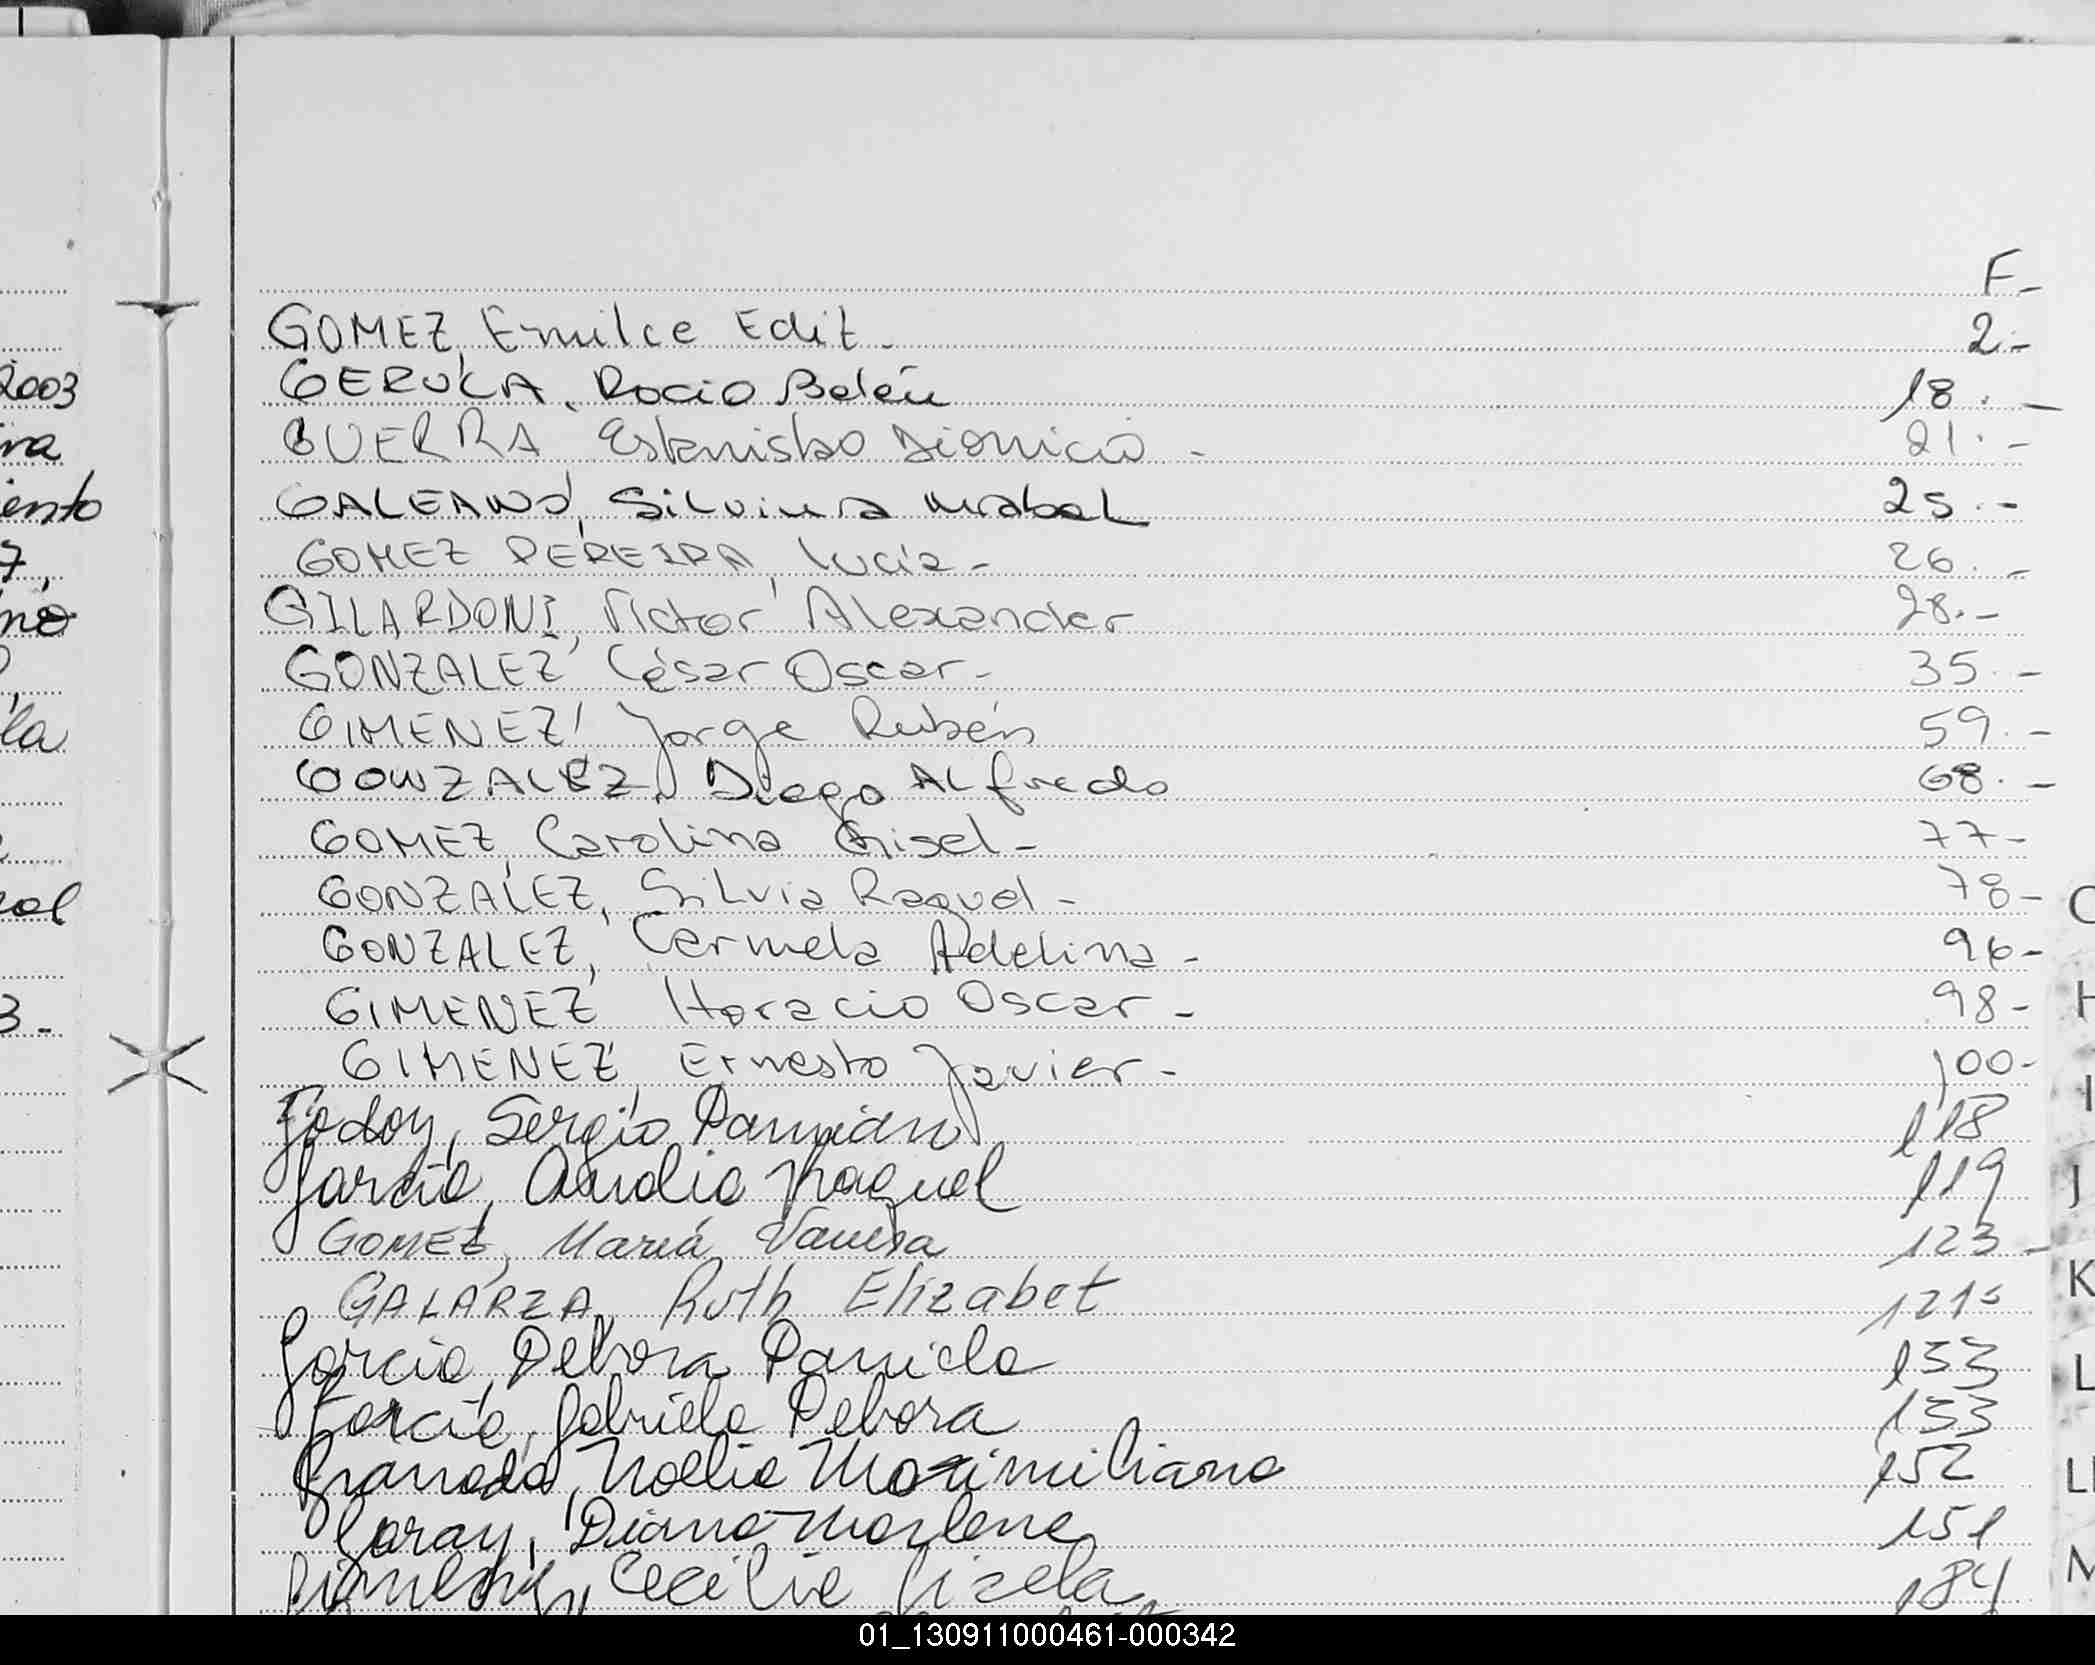 2003
ra
ento
7,
no
la
3.-
F-
GOMEZ, Emilce Edit - 2.-
GERULA, Rocio Belén 18.-
GUERRA Estanislao Dionicio - 21.-
GALEANO, Silvina Mabel 25.-
GOMEZ PEREIRA, Lucía - 26.-
GILARDONI, Victor Alexander 28.-
GONZALEZ César Oscar - 35.-
GIMENEZ, Jorge Rubén 59.-
GONZALEZ, Diego Alfredo 68.-
GOMEZ, Carolina Gisel - 77-
GONZALEZ, Silvia Raquel - 78-
GONZALEZ, Carmela Adelina - 96-
GIMENEZ Horacio Oscar - 98-
GIMENEZ, Ernesto Javier - 100-
Godoy, Sergio Damián 118
García, Analia Raquel 119
GOMEZ, María Vanesa 123-
GALARZA, Ruth Elizabet
García, Debora Daniela 133
García, Gabriela Debora 133
Granada, Noelia Maximiliana 152
Garay, Diana Marlene 151
Cecilia Gisela 184
H
I
J
K
L
LL
M
01_130911000461-000342